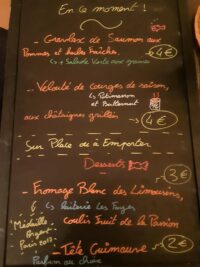 En ce moment !
- Gravlax de Saumon aux
Pommes et huiles Fraîches.
4€
↳ + Salade Verte aux graines
- Velouté de courges de saison,
↳ Potimarron
et Butternut
aux châtaignes grillées
4€
Sur Place ou à Emporter
Desserts
3€
- Fromage Blanc des Limousins,
↳ Laiterie Les Fayes
"Médaille
Argent
Paris 2017"
coulis Fruit de la Passion
- Tête Guimauve
2€
Parfum au choix